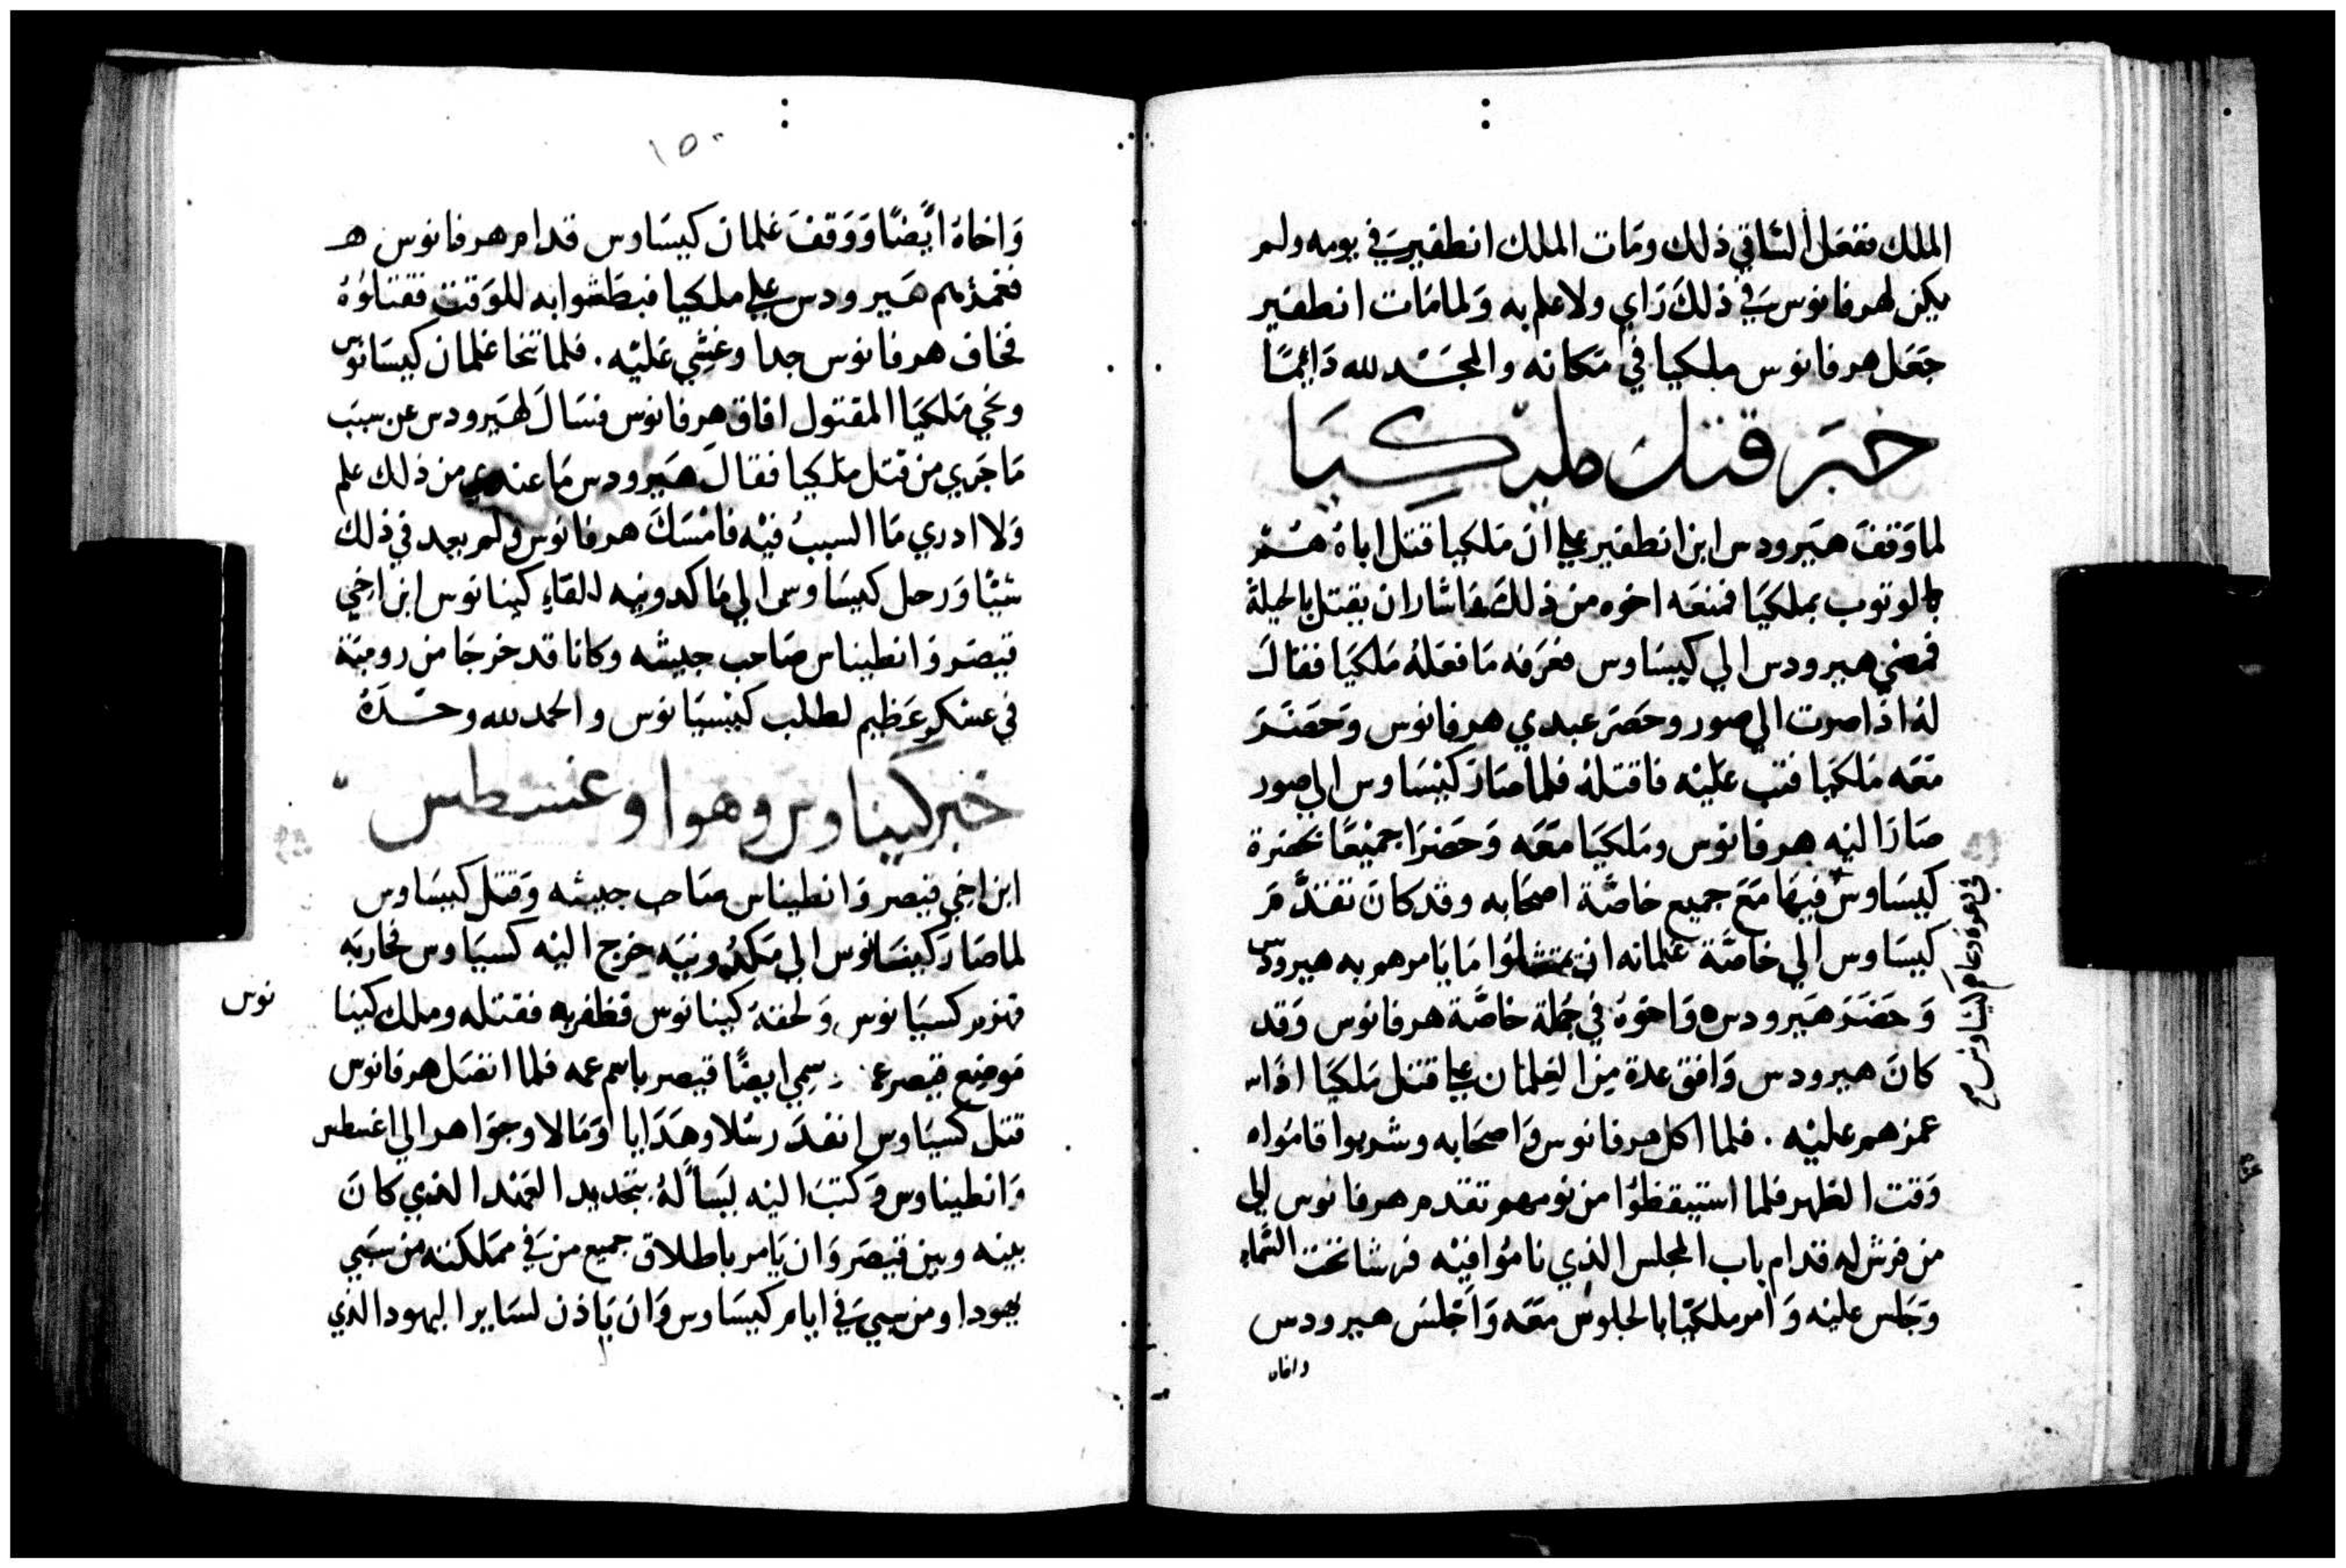 الملك ففعل الساقي ذلك ومات الملك انطفير في يومه ولم
يكن لهرقانوس في ذلك راي ولا علم به ولما مات انطفير
جعل هرقانوس ملكيا في مكانه والمجد لله دائمًا
خبر قتل ملكيا
لما وقف هيرودس ابن انطفير علي ان ملكيا قتل اباه هم
بالوثوب بملكيا فمنعه اخوه من ذلك واشار ان يقتل بالحيلة
فمضي هيرودس الي كيساوس فعرفه ما فعله ملكيا فقال
له اذا صرت الي صور وحضر عبدي هرقانوس وحضر
معه ملكيا فثب عليه فاقتله فلما صار كيساوس الي صور
صار اليه هرقانوس وملكيا معه وحضرا جميعًا بحضرة
كيساوس فيها مع جميع خاصة اصحابه وقد كان تقدم
كيساوس الي خاصة غلمانه ان يمتثلوا ما يامرهم به هيرودس
وحضر هيرودس واخوه في جملة خاصة هرقانوس وقد
كان هيرودس وافق عدة من الغلمان علي قتل ملكيا اذا
غمزهم عليه . فلما اكل هرقانوس واصحابه وشربوا قاموا
وقت الظهر فلما استيقظوا من نومهم تقدم هرقانوس الي
من فرش له قدام باب المجلس الذي ناموا فيه فرشا تحت السماء
وجلس عليه وامر ملكيا بالجلوس معه واجلس هيرودس
واخاه
١٥٠
واخاه ايضًا ووقف غلمان كيساوس قدام هرقانوس
فغمزهم هيرودس علي ملكيا فبطشوا به للوقت فقتلوه
فخاف هرقانوس جدا وغشي عليه . فلما تنحا غلمان كيسانوس
ونحي ملكيا المقتول افاق هرقانوس فسال لهيرودس عن سبب
ما جري من قتل ملكيا فقال هيرودس ما عندي من ذلك علم
ولا ادري ما السبب فيه فامسك هرقانوس ولم يعد في ذلك
شيًا ورحل كيساوس الي ماكدونيه للقاء كينانوس ابن اخي
قيصر وانطيناس صاحب جيشه وكانا قد خرجا من رومية
في عسكر عظيم لطلب كيسيانوس والحمد لله وحده
خبر كيناوس وهو اوغسطس
ابن اخي قيصر وانطيناس صاحب جيشه وقتل كيساوس
لما صار كينسانوس الي مكدونيه خرج اليه كسياوس فحاربه
فهزم كسيانوس ولحقه كينانوس فظفر به فقتله وملك كينا
نوس
موضع قيصر عمه وسمي ايضًا قيصر باسم عمه فلما اتصل هرقانوس
قتل كسياوس انفذ رسلا وهدايا ومالا وجواهر الي اغسطس
وانطيناوس وكتب اليه يسأله بتجديد العهد الذي كان
بينه وبين قيصر وان يامر باطلاق جميع من في مملكته من سبي
يهودا ومن سبي في ايام كيساوس وان ياذن لساير اليهود الذي